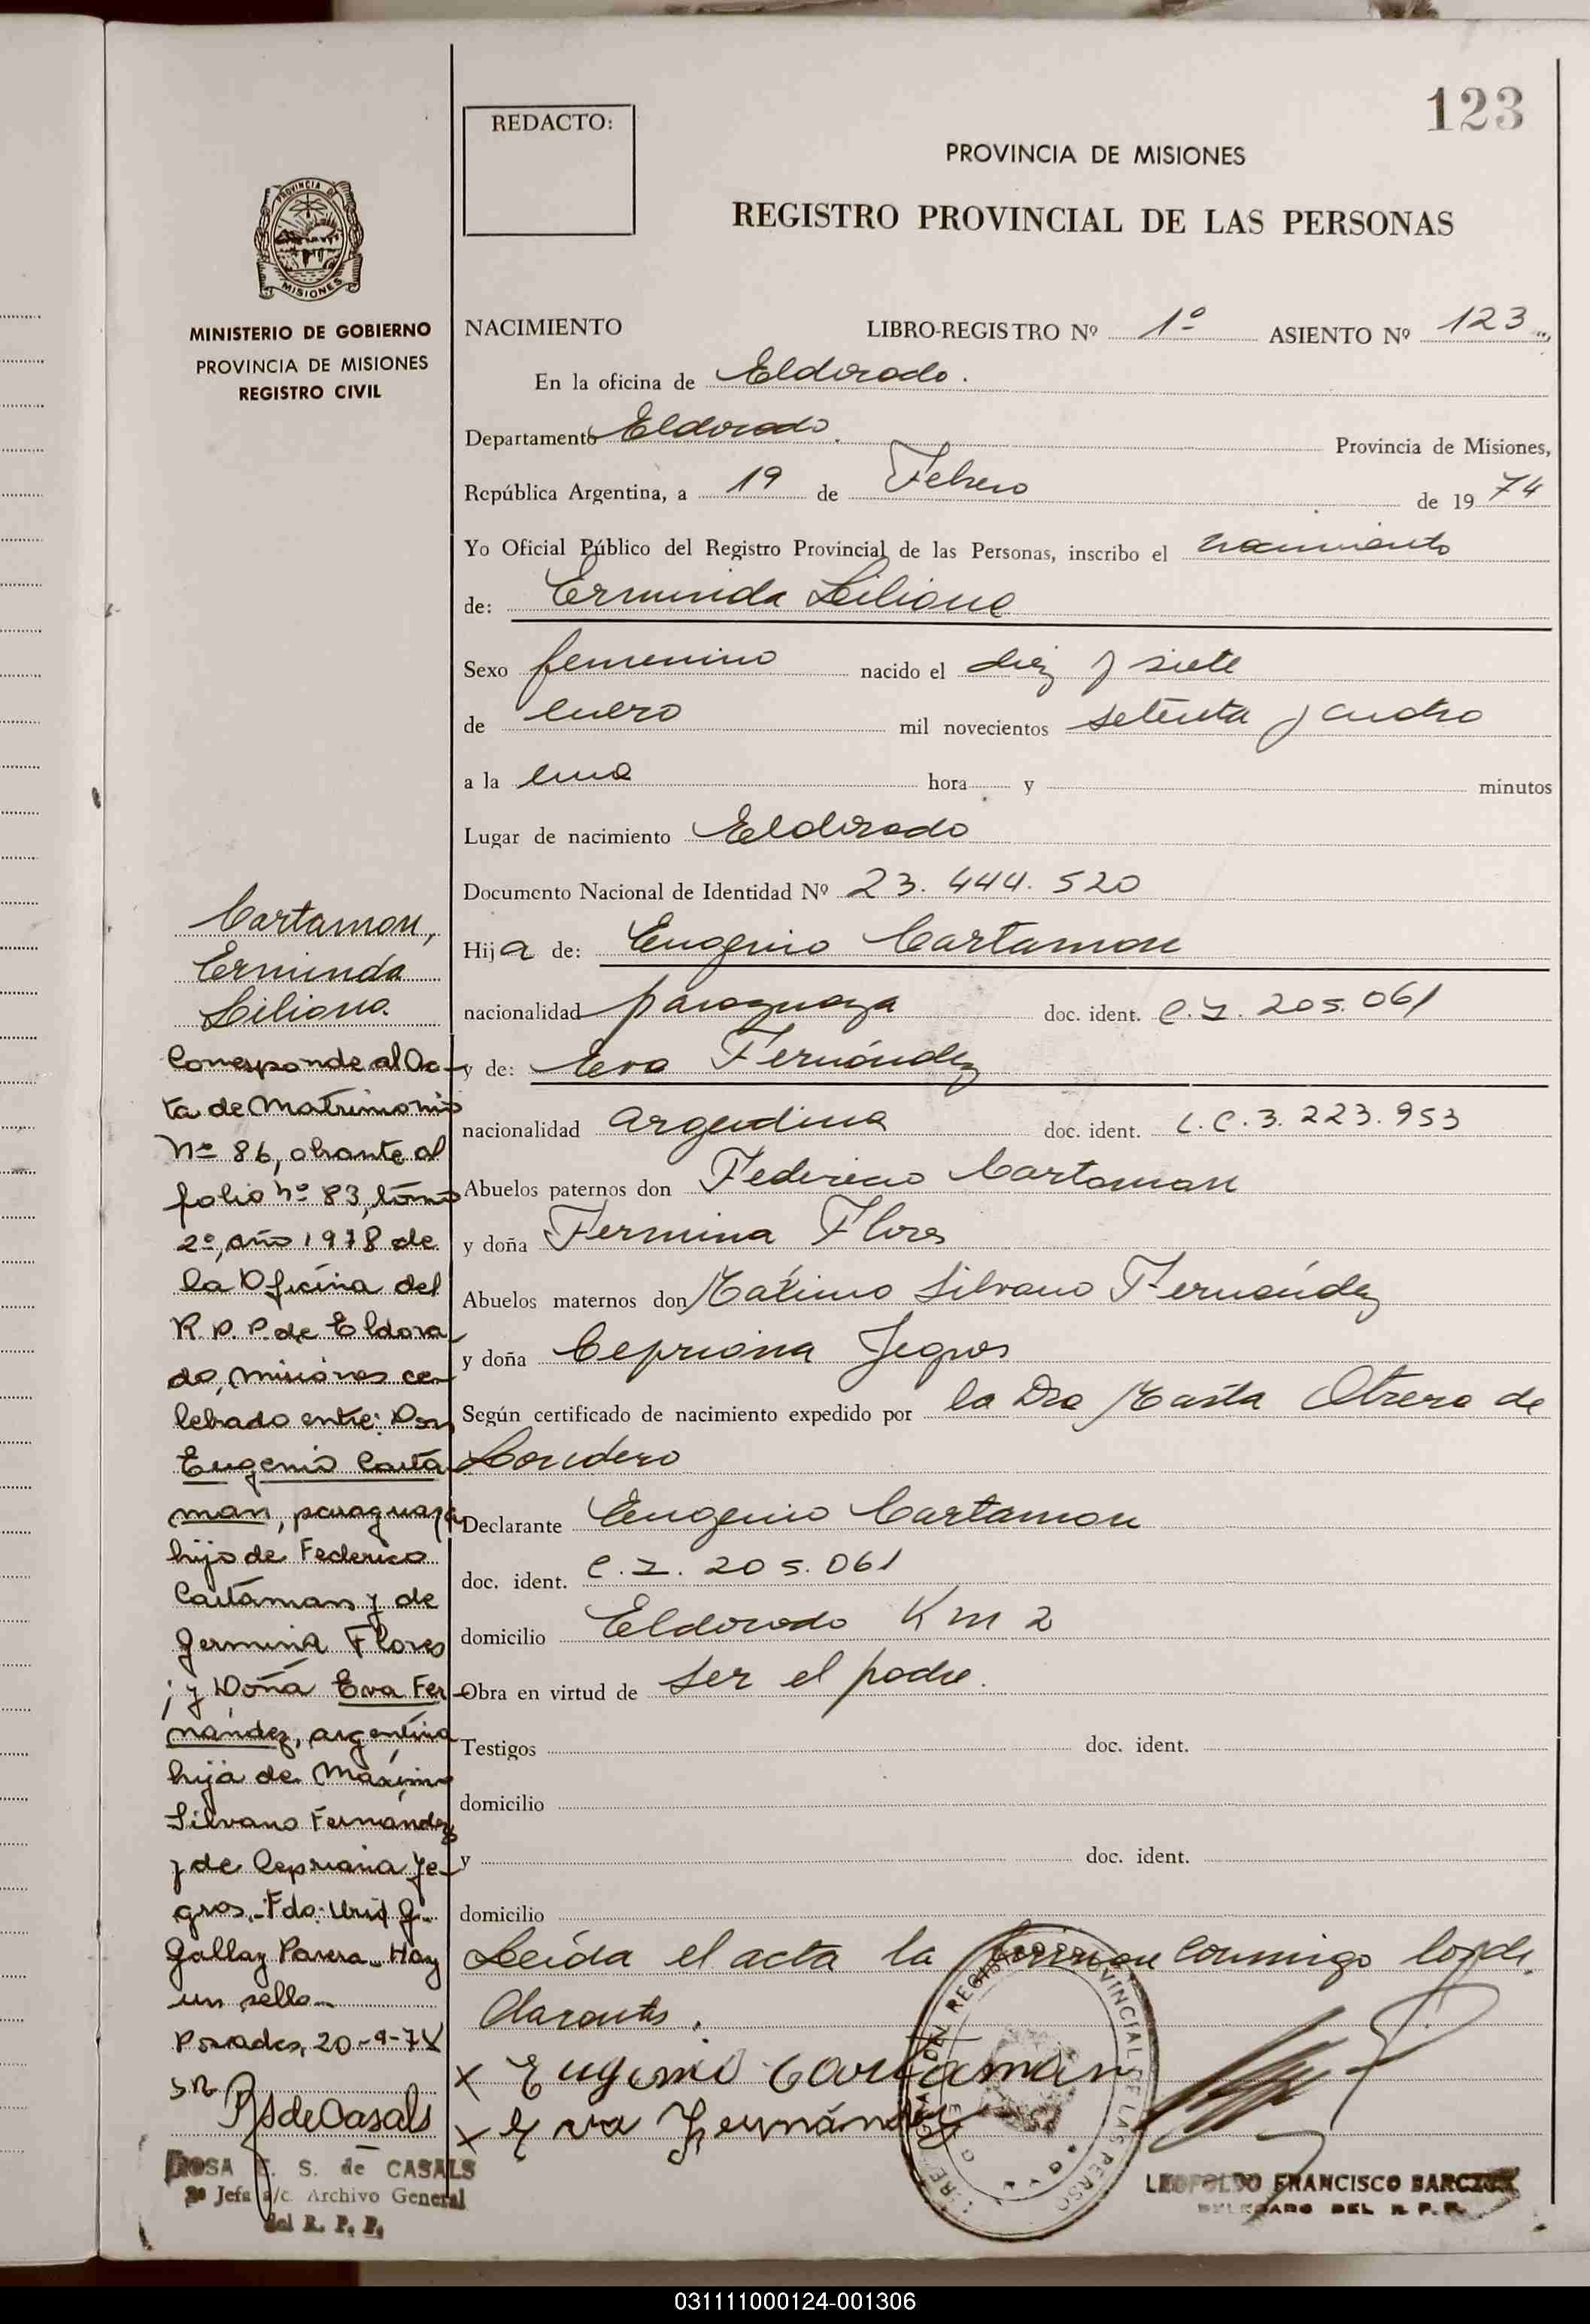 123
REDACTO:
PROVINCIA DE MISIONES
REGISTRO PROVINCIAL DE LAS PERSONAS
PROVINCIA DE
MISIONES
MINISTERIO DE GOBIERNO
PROVINCIA DE MISIONES
REGISTRO CIVIL
NACIMIENTO LIBRO-REGISTRO Nº 1º ASIENTO Nº 123
En la oficina de Eldorado.
Departamento Eldorado. Provincia de Misiones,
República Argentina, a 19 de Febrero de 19 74
Yo Oficial Público del Registro Provincial de las Personas, inscribo el nacimiento
de: Erminda Liliana
Sexo femenino nacido el diez y siete
de enero mil novecientos setenta y cuatro
a la una hora y minutos
Lugar de nacimiento Eldorado
Documento Nacional de Identidad Nº 23.444.520
Hija de: Eugenio Cartaman
nacionalidad paraguaya doc. ident. C.I. 205.061
y de: Eva Fernández
nacionalidad argentina doc. ident. L.C. 3.223.953
Abuelos paternos don Federico Cartaman
y doña Fermina Flores
Abuelos maternos don Máximo Silvano Fernández
y doña Cepriana Jegros
Según certificado de nacimiento expedido por la Dra Marta Otrera de
Londero
Declarante Eugenio Cartaman
doc. ident. C.I. 205.061
domicilio Eldorado Km 2
Obra en virtud de ser el padre.
Testigos doc. ident.
domicilio
y doc. ident.
domicilio
Leída el acta la firman conmigo los de
clarantes.
x Eugenio Cartaman
x Eva Fernández
LEOPOLDO FRANCISCO
DELEGADO DEL R. P. P.
Cartaman,
Erminda
Liliana.
Corresponde al Ac-
ta de Matrimonio
Nº 86, obrante al
folio nº 83, tomo
2º, año 1978 de
la Oficina del
R.P.P. de Eldora
do, Misiones ce-
lebrado entre: Don
Eugenio Carta
man, paraguaya
hijo de Federico
Cartaman y de
Germina Flores
; y Doña Eva Fer-
nández, argentina
hija de Máximo
Silvano Fernández
y de Cepriana Je-
gros.- Fdo:
Gallay Parera. Hay
un sello.-
Posadas, 20-9-78
SR
RSdeCasals
ROSA E. S. de CASALS
2º Jefa a/c. Archivo General
del R. P. P.
031111000124-001306